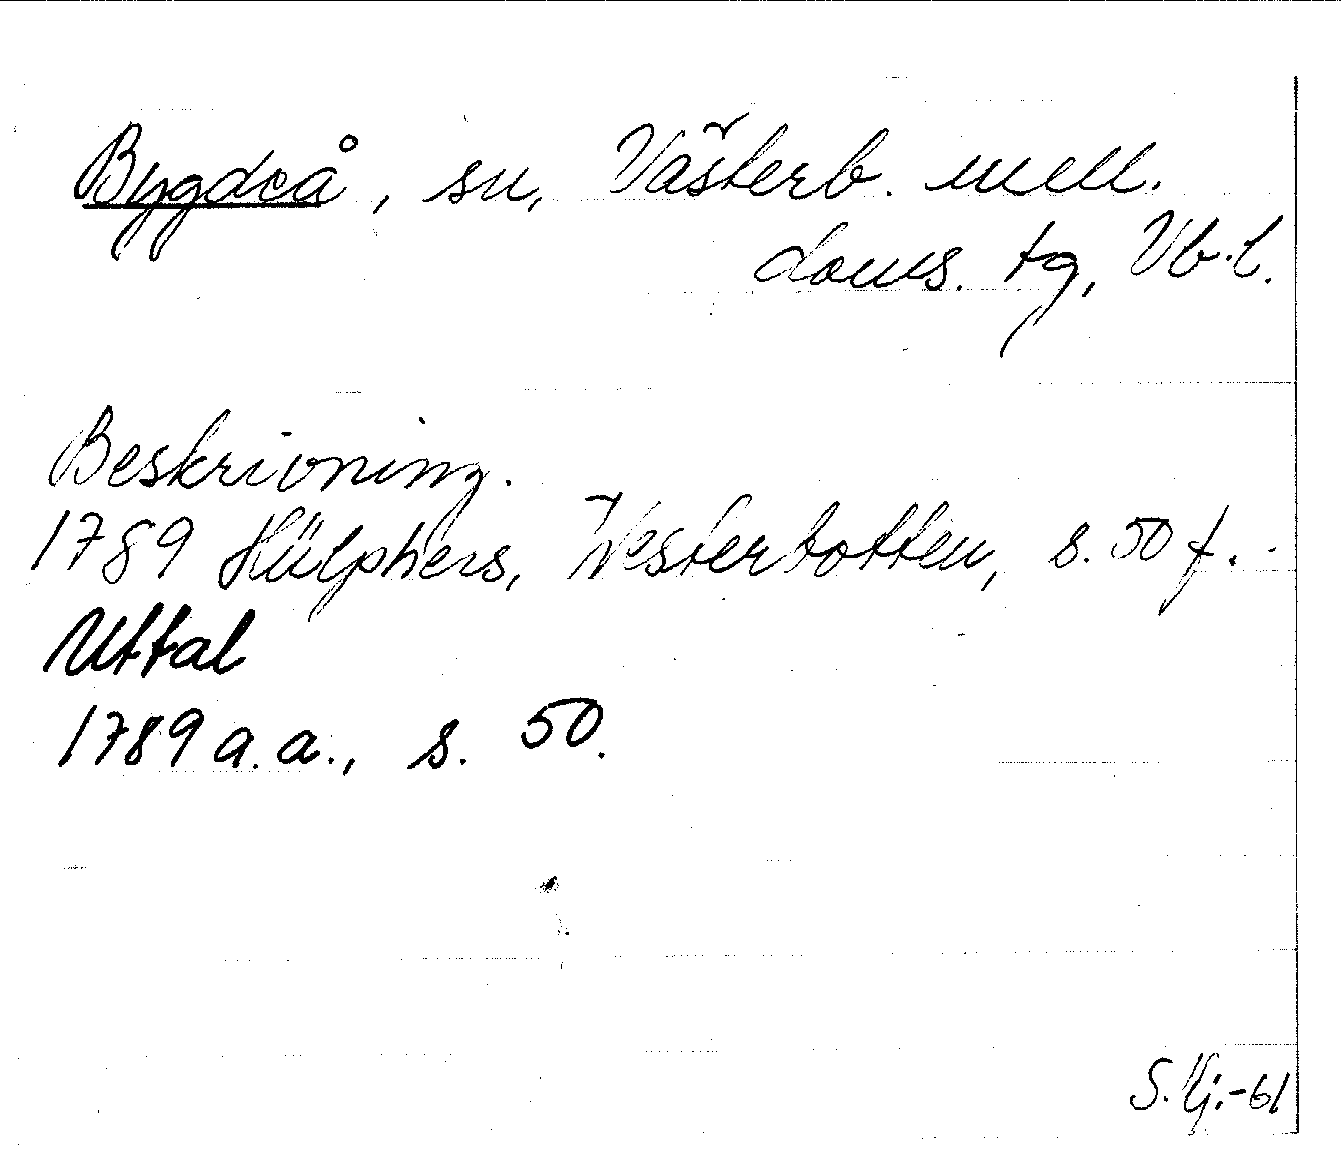 Bygdeå, sn, Västerb. mell.
doms. tg, Vb. l.
Beskrivning.
1789 Hülphers, Westerbotten, s. 50 f.
Uttal
1789 a.a., s. 50.
S. Lj. -61